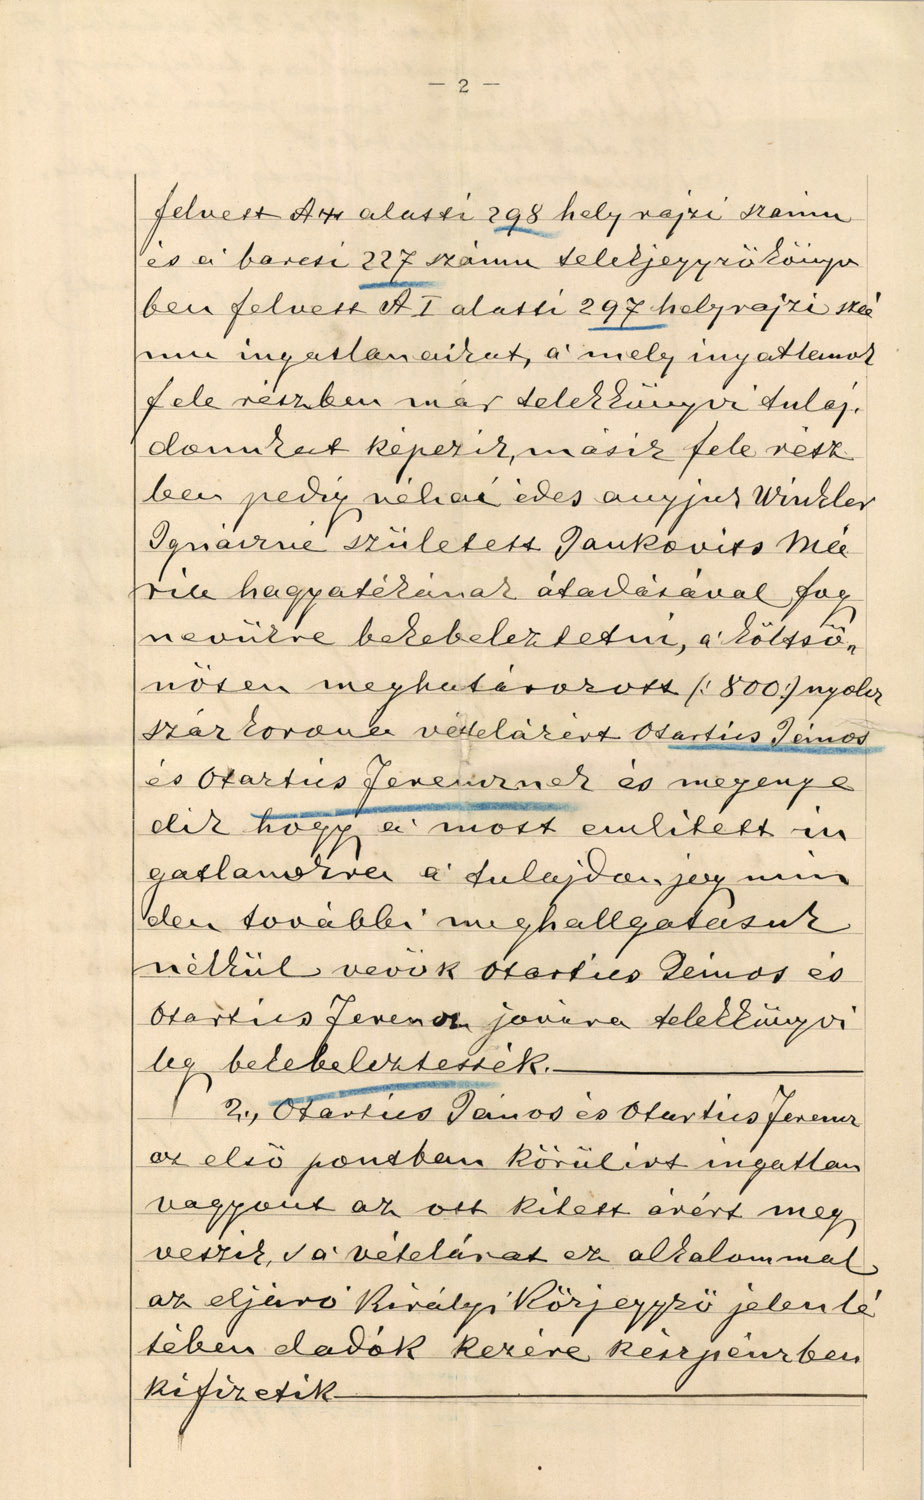 — 2 —
felvett A+ alatti 298 helyrajzi számu
és a barcsi 227 számu telekjegyzőkönyv
ben felvett A I alatti 297 helyrajzi szá
mu ingatlanaikat, a mely ingatlanok
fele részben már telekkönyvi tulaj.
donukat képezik, másik fele rész
ben pedig néhai édes anyjuk Winkler
Ignáczné született Jankovits Má
ria hagyatékának átadásával fog
nevükre bekebeleztetni, a kölcsö„
nösen meghatározott (:800:) nyolcz
száz korona vételárért Otartics János
és Otartics Ferencznek és megenge
dik hogy a most emlitett in
gatlanokra a tulajdonjog min
den további meghallgatásuk
nélkül vevők Otartics János és
Otartics Ferencz javára telekkönyvi
leg bekebeleztessék.
2., Otartics János és Otartics Ferencz
az első pontban körülirt ingatlan
vagyont az ott kitett árért meg
veszik, s a vételárat ez alkalommal
az eljáró Királyi Közjegyző jelenlé
tében eladók kezére készpénzben
kifizetik